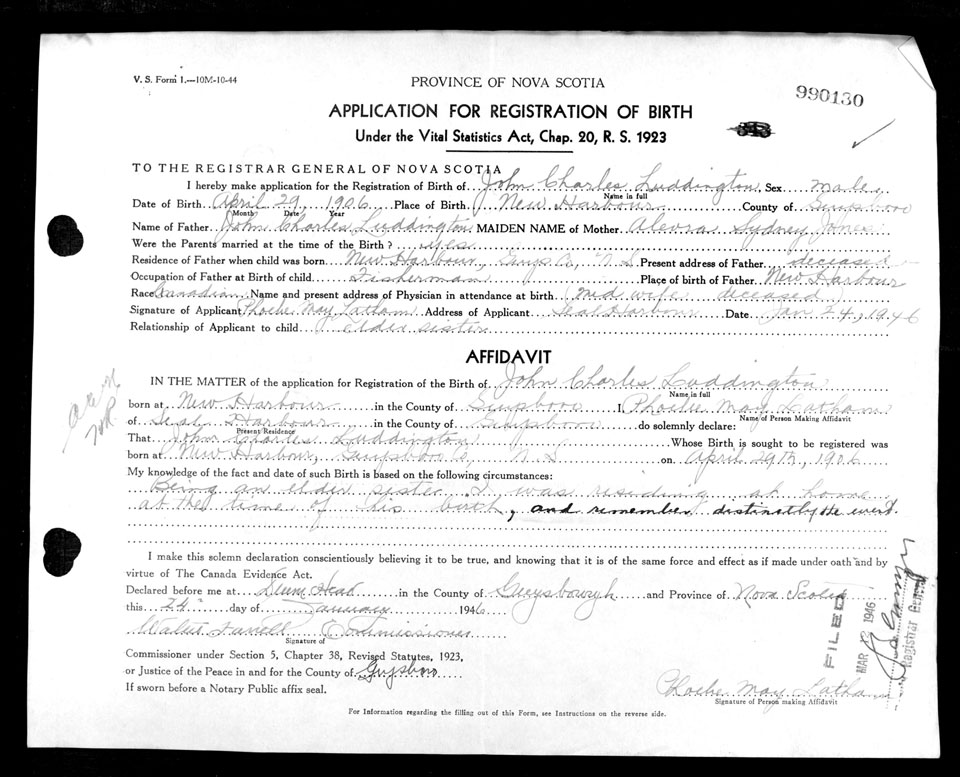 V. S. Form 1.—10M-10-44
PROVINCE OF NOVA SCOTIA
990130
APPLICATION FOR REGISTRATION OF BIRTH
Under the Vital Statistics Act, Chap. 20, R. S. 1923
TO THE REGISTRAR GENERAL OF NOVA SCOTIA
I hereby make application for the Registration of Birth of John Charles Luddington Sex male
Name in full
Date of Birth April 29, 1906 Place of Birth New Harbour County of Guysboro
(Month) Date Year
Name of Father John Charles Luddington MAIDEN NAME of Mother Sydney Jones
Were the Parents married at the time of the Birth ? yes
Residence of Father when child was born New Harbour, Guys Co, N S Present address of Father deceased
Occupation of Father at Birth of child Fisherman Place of birth of Father New Harbour
Race Canadian Name and present address of Physician in attendance at birth (mid wife deceased)
Signature of Applicant Phoebe May Latham Address of Applicant Seal Harbour Date Jan 24, 1946
Relationship of Applicant to child elder sister
AFFIDAVIT
IN THE MATTER of the application for Registration of the Birth of John Charles Luddington
Name in full
born at New Harbour in the County of Guysboro I, Phoebe May Latham
Name of Person Making Affidavit
of Seal Harbour in the County of Guysboro do solemnly declare:
Present Residence
That John Charles Luddington Whose Birth is sought to be registered was
born at New Harbour, Guysboro Co, N S on April 29th, 1906
My knowledge of the fact and date of such Birth is based on the following circumstances:
Being an elder sister I was residing at home
at the time of his birth, and remember distinctly the event.
I make this solemn declaration conscientiously believing it to be true, and knowing that it is of the same force and effect as if made under oath and by
virtue of The Canada Evidence Act.
Declared before me at Head in the County of Guysborough and Province of Nova Scotia
this 24 day of January 1946
Commissioner
Signature of
Commissioner under Section 5, Chapter 38, Revised Statutes, 1923,
or Justice of the Peace in and for the County of Guysboro
If sworn before a Notary Public affix seal.
Phoebe May Latham
Signature of Person making Affidavit
FILED
MAR 1946
Registrar General
For Information regarding the filling out of this Form, see Instructions on the reverse side.